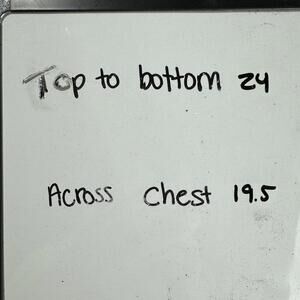 Top to bottom 24
Across chest 19.5